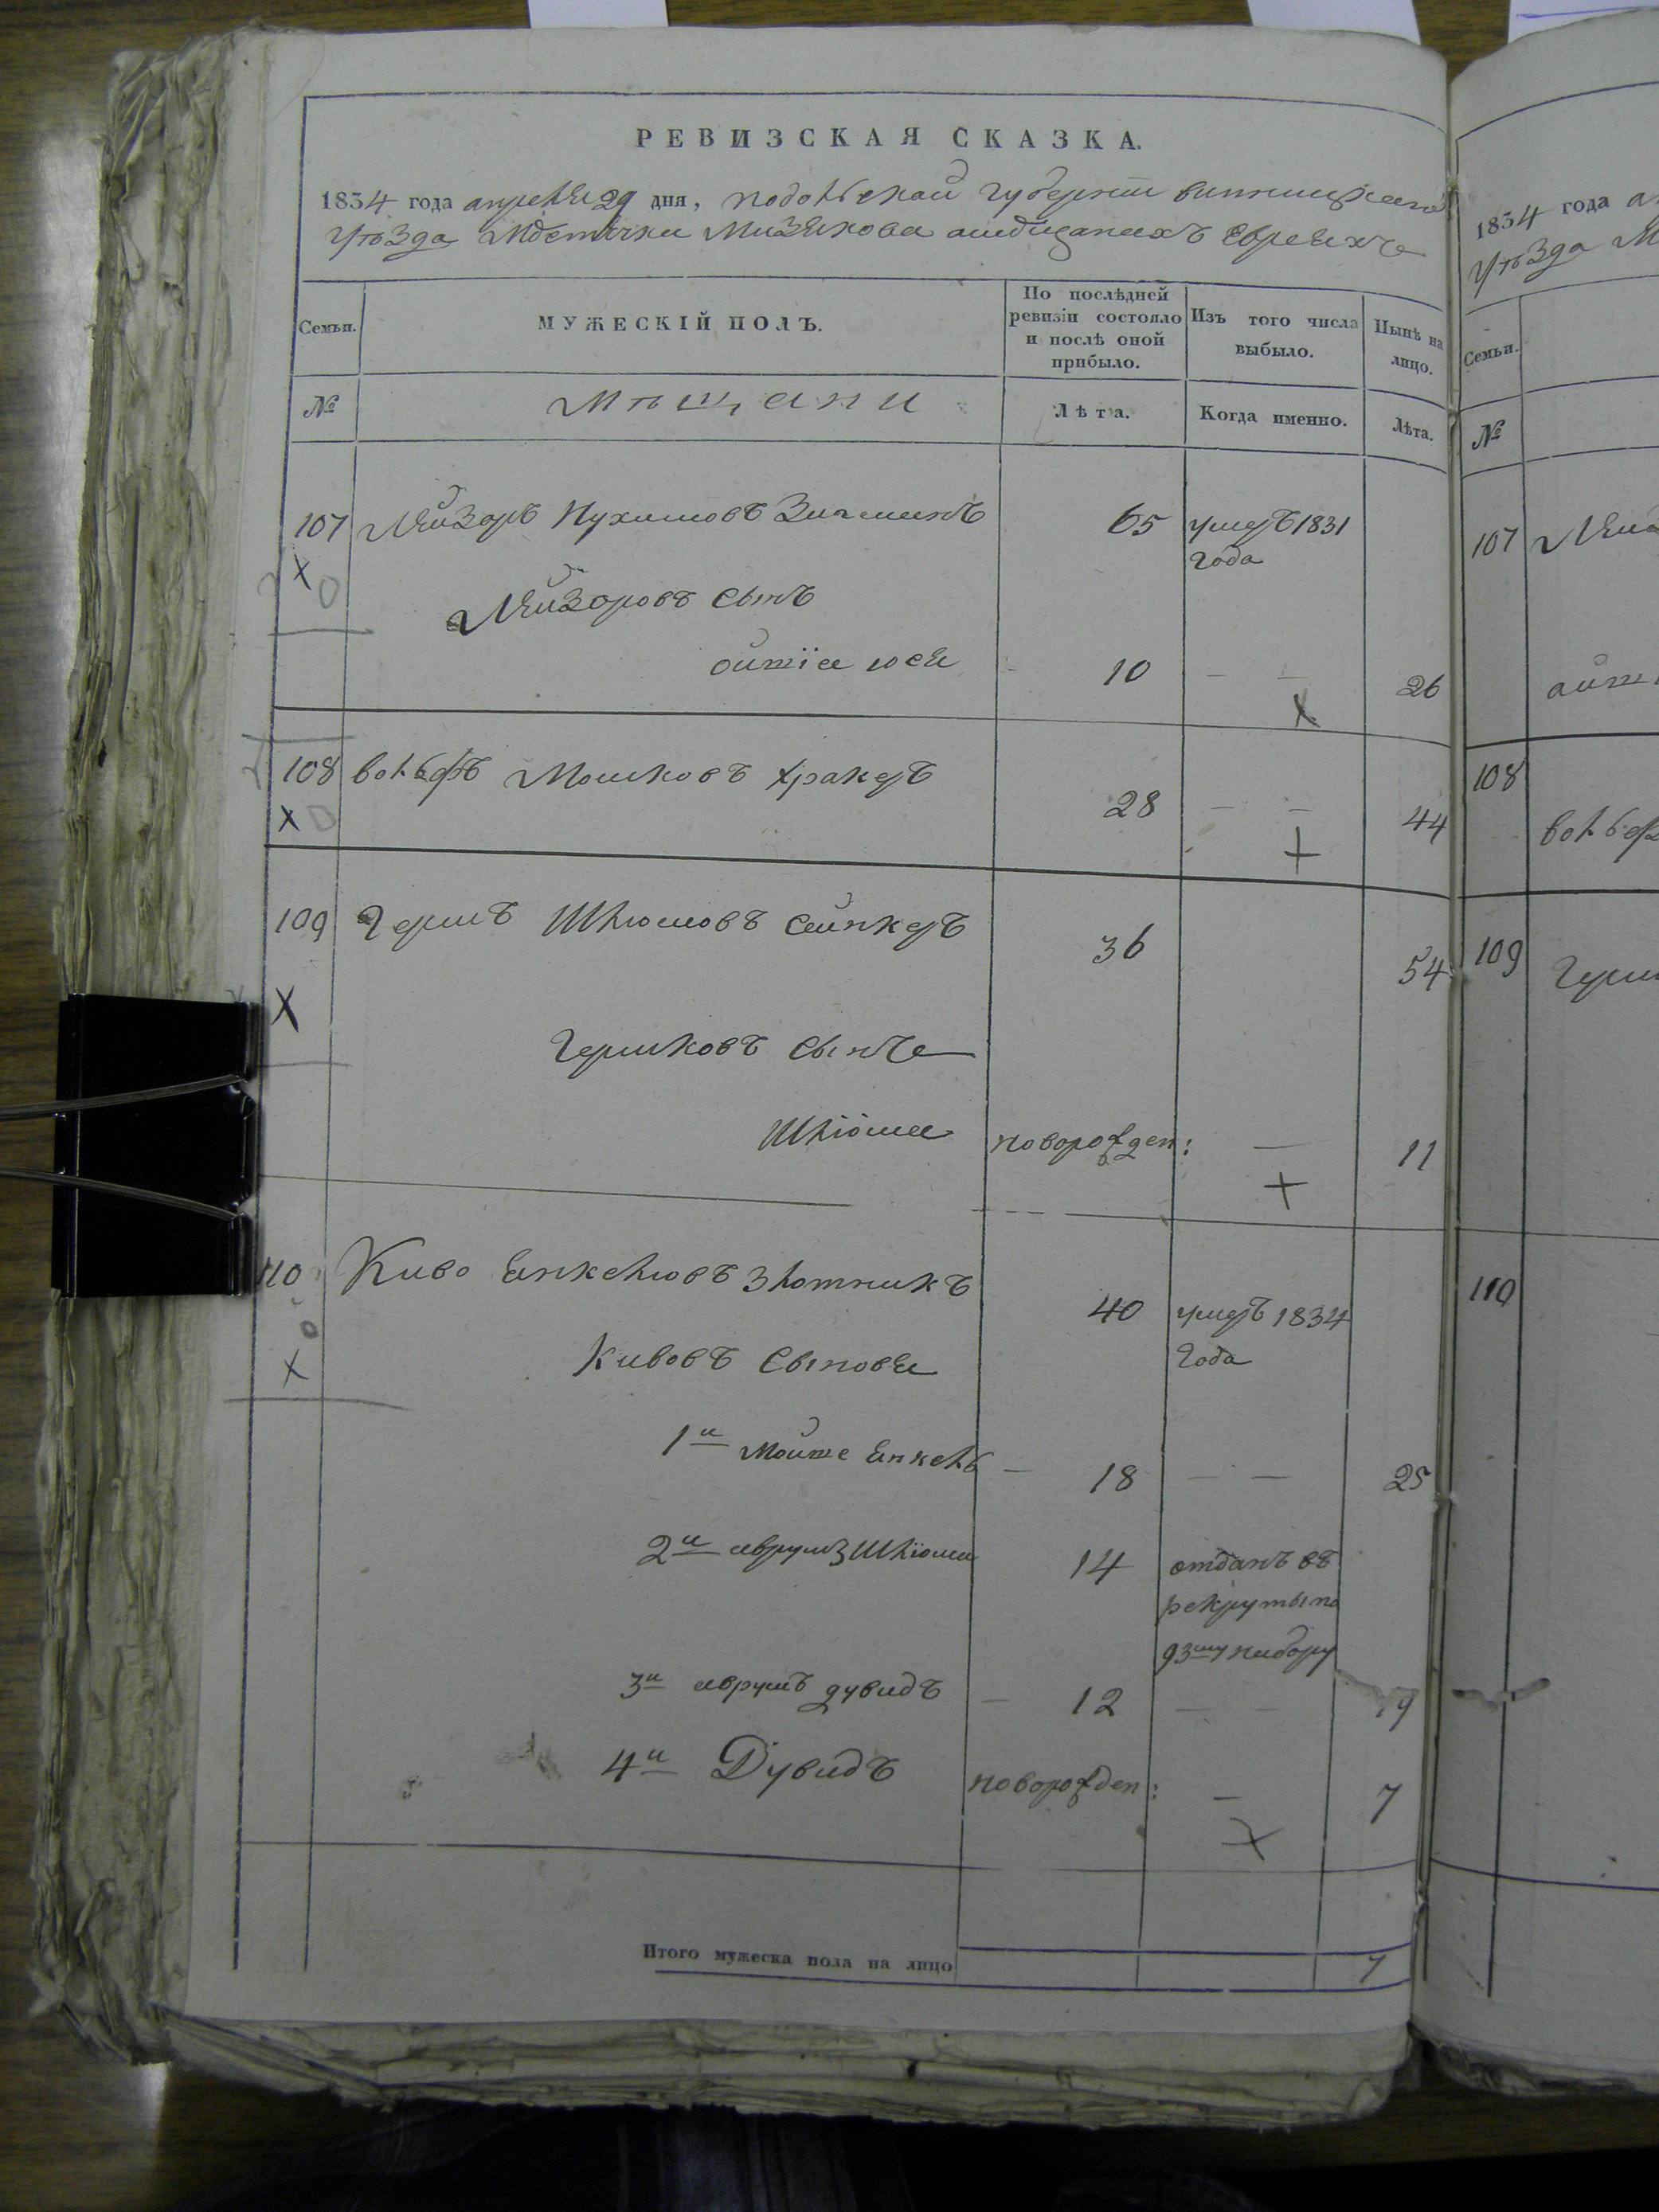 РЕВИЗСКАЯ СКАЗКА.
1834 года апреля 29 дня, подольской губернии винницкаго
уѣзда мѣстечка Мизякова о мѣщанахъ евреяхъ
Семьи.
МУЖЕСКІЙ ПОЛЪ.
По послѣдней ревизіи состояло и послѣ оной прибыло.
Изъ того числа выбыло.
Нынѣ на лицо.
№
мѣщани
Лѣта.
Когда именно.
Лѣта.
107 Лейзоръ Нухимовъ 65 умеръ 1831
года
Лейзоровъ сынъ
10 — — 26
108 вольфъ Мошковъ 28 — — 44
109 Гершъ Шлюмовъ 36 54
Гершковъ сынъ
Шлiома новорожден: — 11
110 Киво Янкелювъ Злотникъ 40 умеръ 1834
года
Кивовъ сыновя
1й Мойше Янкель — 18 — — 25
2й аврумъ Шлiома 14 отданъ въ
рекруты по
93му набору
3й аврумъ дувидъ — 12 — — 19
4й Дувидъ новорожден: — 7
Итого мужеска пола на лицо 7
1834 года
уѣзда
Семьи.
№
107
108
вольф
109
110